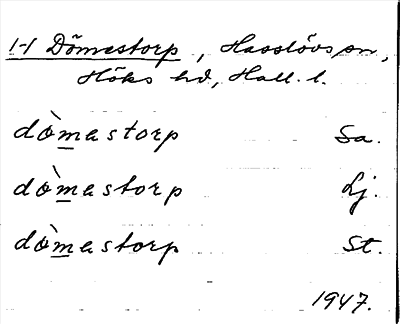 1-1 Dömestorp, Hasslövs sn,
Höks hd, Hall. l.
dòmestorp Sa.
dòmestorp Lj.
dòmestorp St.
1947.